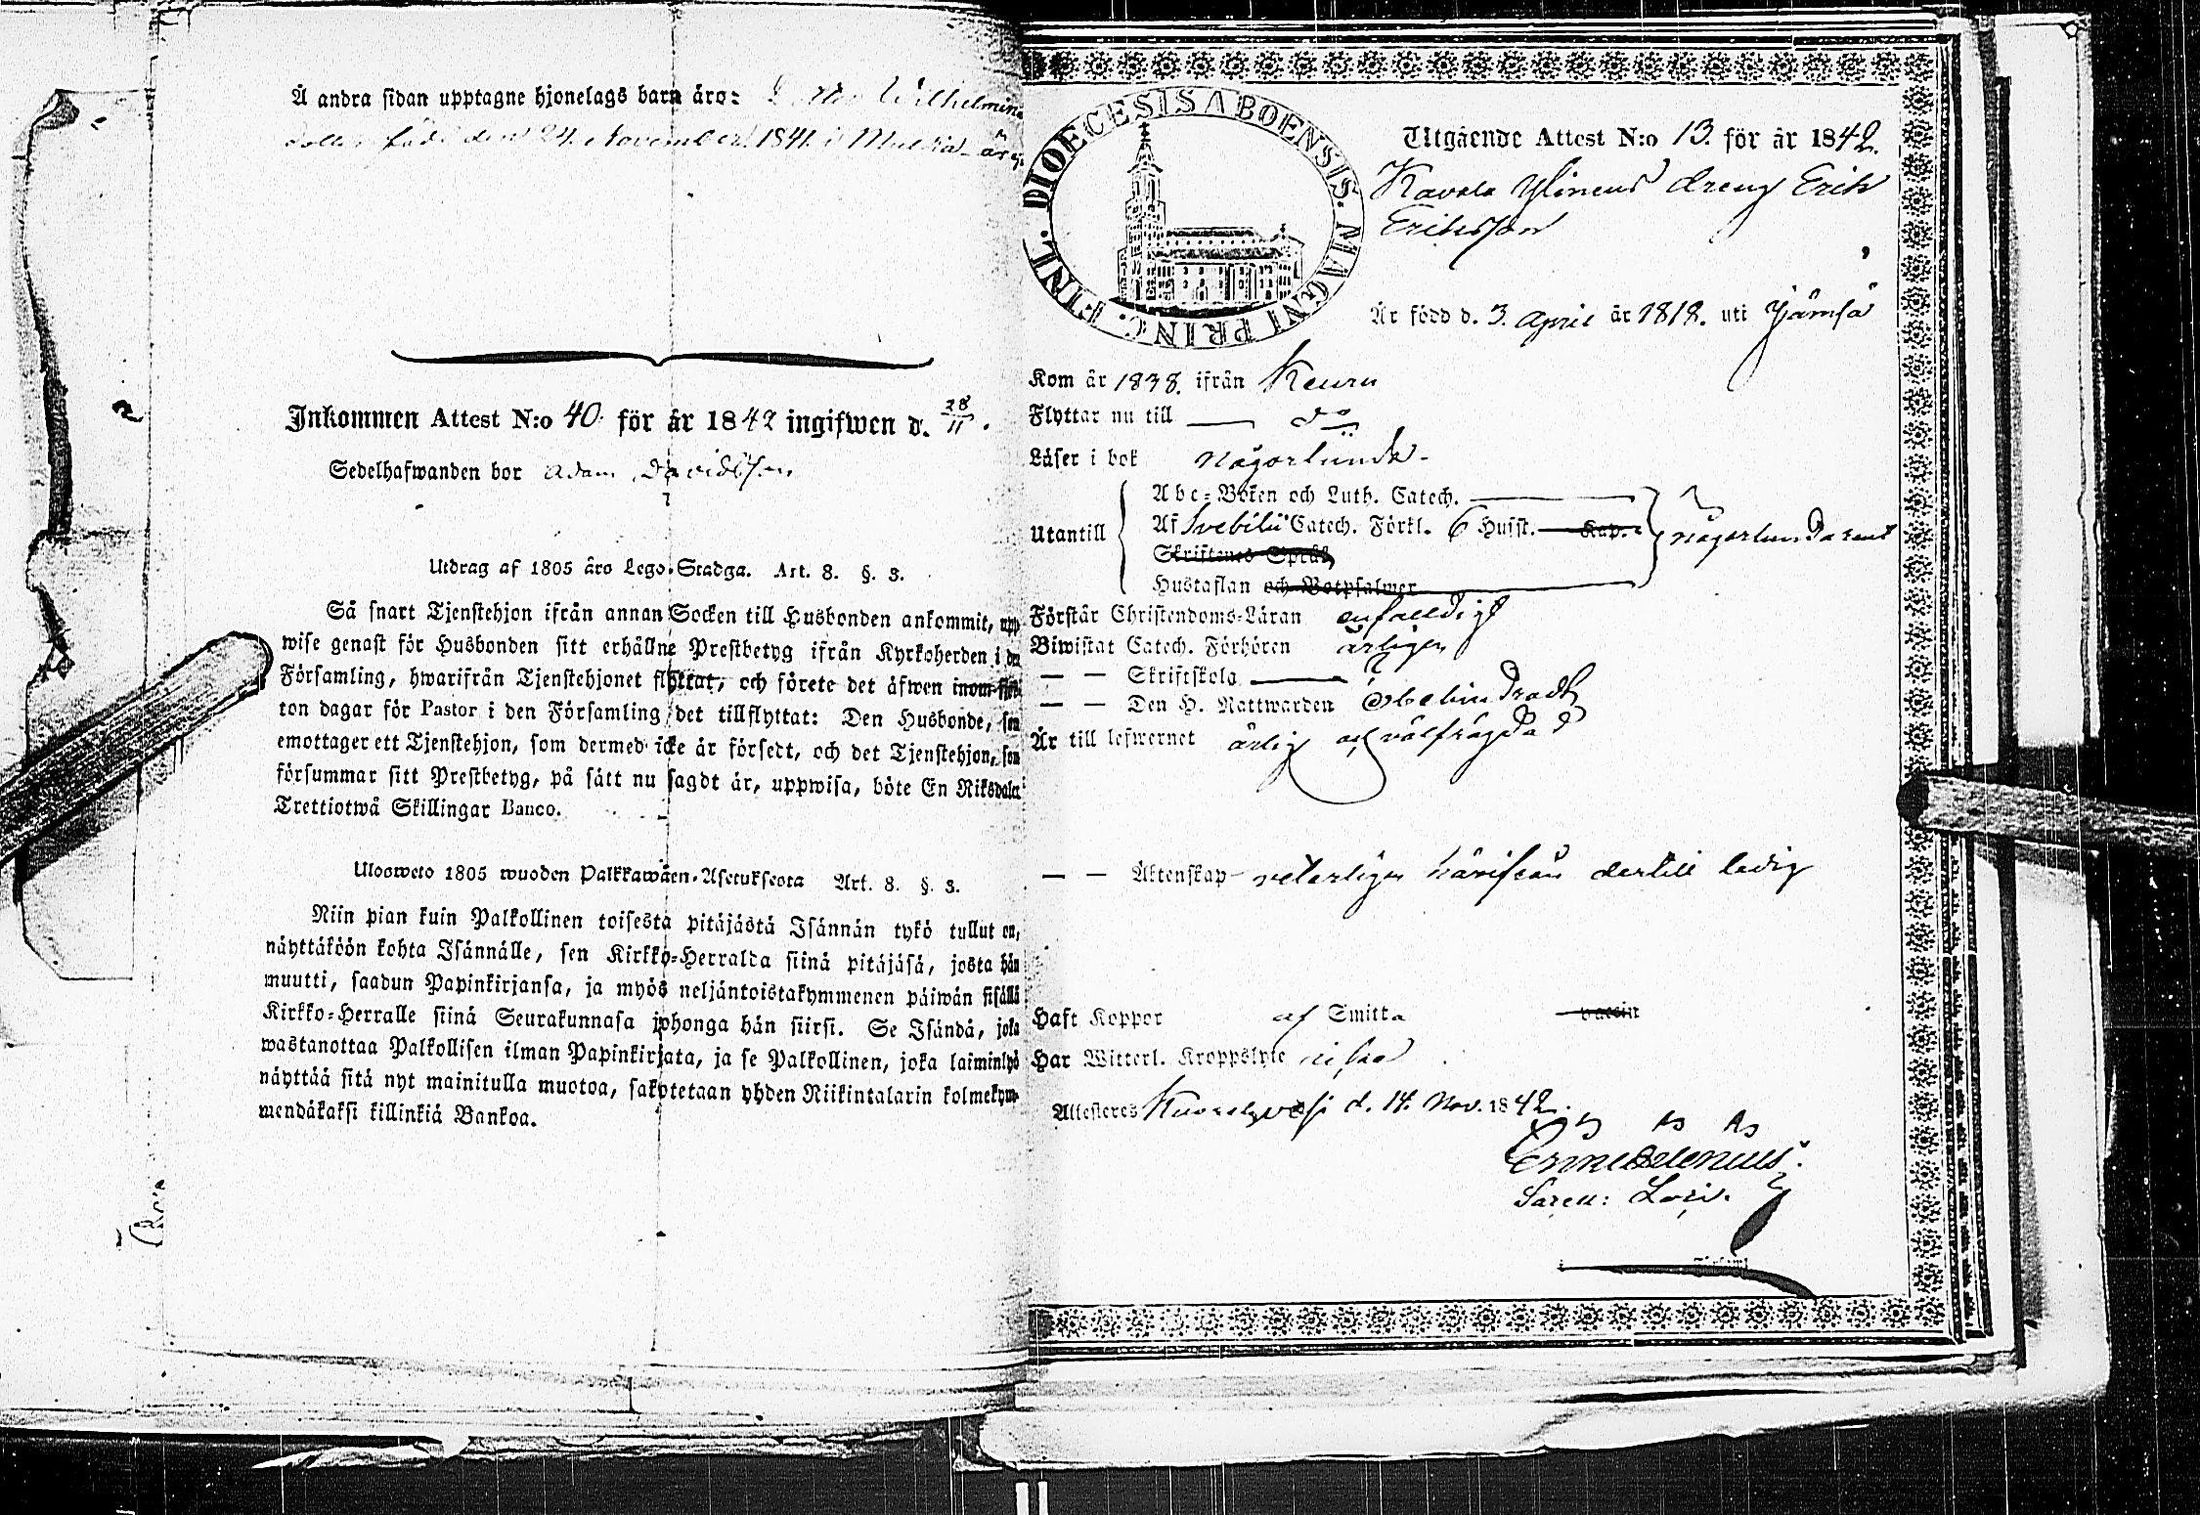 Å andra sidan upptagne hjonelags barn äro: Wilhelmina
född den 24 November 1841 i Multia
Inkommen Attest N:o 40. för år 1842 ingifwen d. 28/11.
Sedelhafwanden bor Adam Davidsson
Utdrag af 1805 års Lego-Stadga. Art. 8. §. 3.
Så snart Tjenstehjon ifrån annan Socken till Husbonden ankommit, upp
wise genast för Husbonden sitt erhållne Prestbetyg ifrån Kyrkoherden i den
Församling, hwarifrån Tjenstehjonet flyttat, och förete det äfwen inom fjor-
ton dagar för Pastor i den Församling det tillflyttat: Den Husbonde, som
emottager ett Tjenstehjon, som dermed icke är försedt, och det Tjenstehjon, som
försummar sitt Prestbetyg, på sätt nu sagdt är, uppwisa, böte En Riksdaler
Trettiotwå Skillingar Banco.
Ulosweto 1805 wuoden Palkkawäen-Asetuksesta Art. 8. §. 3.
Niin pian kuin Palkollinen toisesta pitäjästä Isännän tykö tullut on,
näyttäköön kohta Isännälle, sen Kirkko-Herralda siinä pitäjäsä, josta hän
muutti, saadun Papinkirjansa, ja myös neljäntoistakymmenen päiwän sisällä
Kirkko-Herralle siinä Seurakunnasa johonga hän siirsi. Se Isändä, joka
wastanottaa Palkollisen ilman Papinkirjata, ja se Palkollinen, joka laiminlyö
näyttää sitä nyt mainitulla muotoa, sakotetaan yhden Riikintalarin kolmekym-
mendäkaksi killinkiä Bankoa.
DIOECESIS ABOENSIS. MAGNI PRINC. FINL.
Utgående Attest N:o 13. för år 1842.
Kavala Ylinens dreng Erik
Eriksson
Är född d. 3. April år 1818. uti Jämsä
Kom år 1838. ifrån Keuru
Flyttar nu till — do
Läser i bok någorlunda
Utantill
Abc-Boken och Luth. Catech.
Af Svebilii Catech. Förkl. 6 Hufst. Kap.
Skriftenes Språk
Hustaflan och Botpsalmer
någorlunda rent
Förstår Christendoms-Läran enfaldigt
Biwistat Catech. Förhören årligen
— — Skriftskola
— — Den H. Nattwarden obehindradt
Är till lefwernet ärlig och välfrägdad
— — Äktenskap veterligen härifrån dertill ledig
Haft Koppor af Smitta vaccin
Har Witterl. Kroppslyte
Attesteras Kuorehvesi d. 14. Nov. 1842.